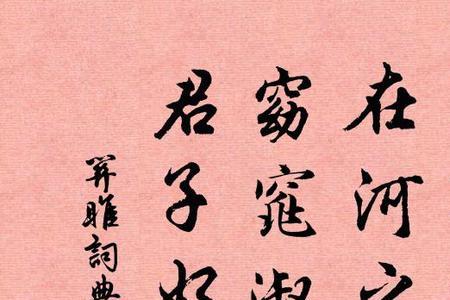 在河
窈窕淑
君子好
關雎詞典